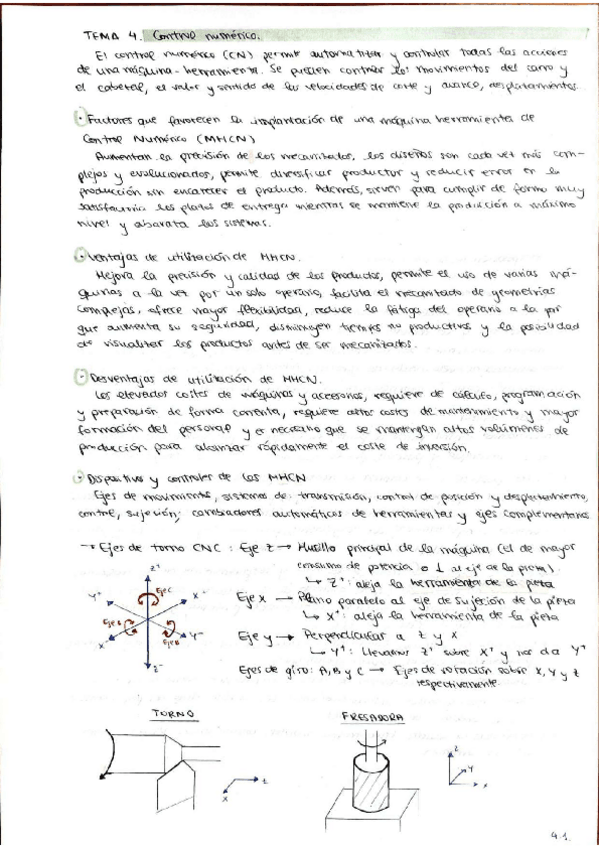 TEMA 4. Control numérico.
El control numérico (CN) permite automatizar y controlar todas las acciones
de una máquina-herramienta. Se pueden controlar los movimientos del carro y
el cabezal, el valor y sentido de las velocidades de corte y avance, desplazamientos.
- Factores que favorecen la implantación de una máquina herramienta de
Control Numérico (MHCN)
Aumentan la precisión de los mecanizados, los diseños son cada vez más com-
plejos y evolucionados, permite diversificar productor y reducir error en la
producción sin encarecer el producto. Además, sirven para cumplir de forma muy
satisfactoria los plazos de entrega mientras se mantiene la producción a máximo
nivel y abarata los sistemas.
- Ventajas de utilización de MHCN.
Mejora la precisión y calidad de los productos, permite el uso de varias má-
quinas a la vez por un solo operario, facilita el mecanizado de geometrías
complejas, ofrece mayor flexibilidad, reduce la fatiga del operario a la par
que aumenta su seguridad, disminuyen tiempos no productivos y la posibilidad
de visualizar los productos antes de ser mecanizados.
- Desventajas de utilización de MHCN.
Los elevados costes de máquinas y accesorios, requiere de cálculo, programación
y preparación de forma correcta, requiere altos costes de mantenimiento y mayor
formación del personal y es necesario que se mantengan altos volúmenes de
producción para alcanzar rápidamente el coste de inversión.
- Dispositivos y controles de las MHCN
Ejes de movimiento, sistemas de transmisión, control de posición y desplazamiento,
control, sujeción, cambiadores automáticos de herramientas y ejes complementarios
→ Ejes de torno CNC: Eje z → Husillo principal de la máquina (el de mayor
consumo de potencia o ⊥ al eje de la pieza).
↳ Z⁺: aleja la herramienta de la pieza
Eje x → Plano paralelo al eje de sujeción de la pieza
↳ X⁺: aleja la herramienta de la pieza
Eje y → Perpendicular a z y x
↳ Y⁺: Llevamos Z⁺ sobre X⁺ y nos da Y⁺
Ejes de giro: A, B y C → Ejes de rotación sobre X, Y y z
respectivamente.
Z⁺
Y⁺
Eje C
X⁻
Eje B
Eje A
X⁺
Y⁻
Z⁻
TORNO
FRESADORA
z
x
Z
Y
x
4.1.